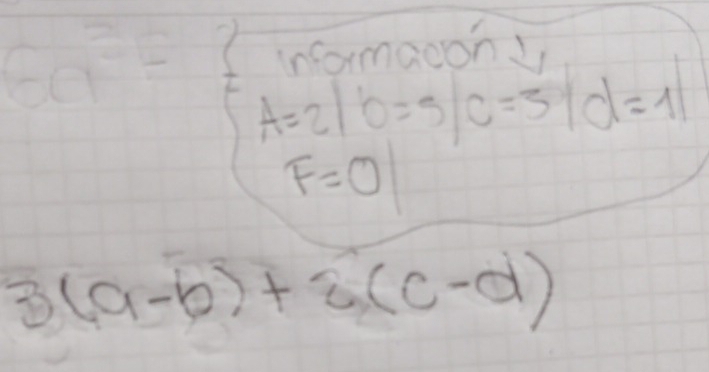 6a² =
información ↓
A=2| b=5|c=3|d=1|
F=0|
3(a-b)+2(c-d)